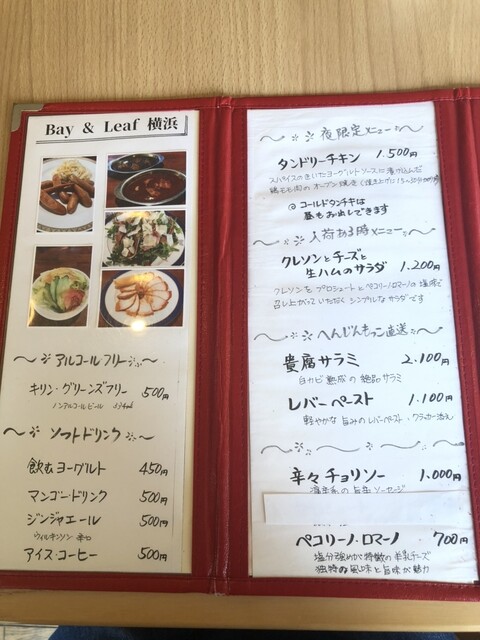 Bay & Leaf 横浜
アルコールフリー
キリン・グリーンズフリー 500円
ノンアルコールビール
ソフトドリンク
飲むヨーグルト 450円
マンゴードリンク 500円
ジンジャエール 500円
ウィルキンソン 辛口
アイス・コーヒー 500円
夜限定メニュー
タンドリーチキン 1.500円
スパイスのきいたヨーグルトソースに漬け込んだ
鶏もも肉のオーブン焼き
@コールドタンチキは
昼もお出しできます
入荷ある時メニュー
クレソンとチーズと
生ハムのサラダ 1.200円
クレソンを プロシュートとペコリーノ・ロマーノの塩味で
召し上がっていただく シンプルなサラダです
へんじんもっこ直送
貴腐サラミ 2.100円
白カビ熟成の絶品サラミ
レバーペースト 1.100円
軽やかな旨みのレバーペースト・クラッカー添え
辛々チョリソー 1.000円
ペコリーノ・ロマーノ 700円
塩分強めが特徴の羊乳チーズ
独特の風味と旨味が魅力